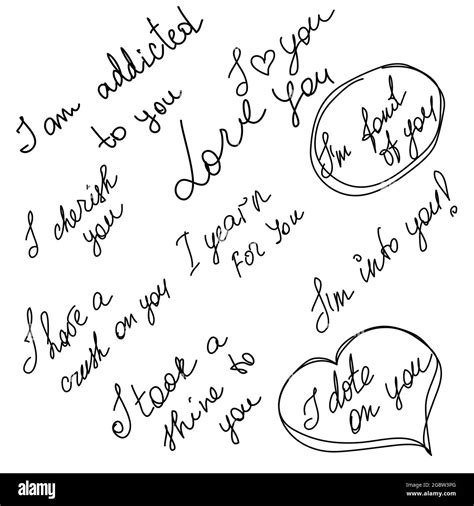 I am addicted
to you
I ♡ you
Love you
I'm fond
of you
I cherish
you
I yearn
For You
I'm into you!
I have a
crush on you
I took a
shine to
you
I dote
on you
alamy
Image ID: 2GBW3PG
www.alamy.com